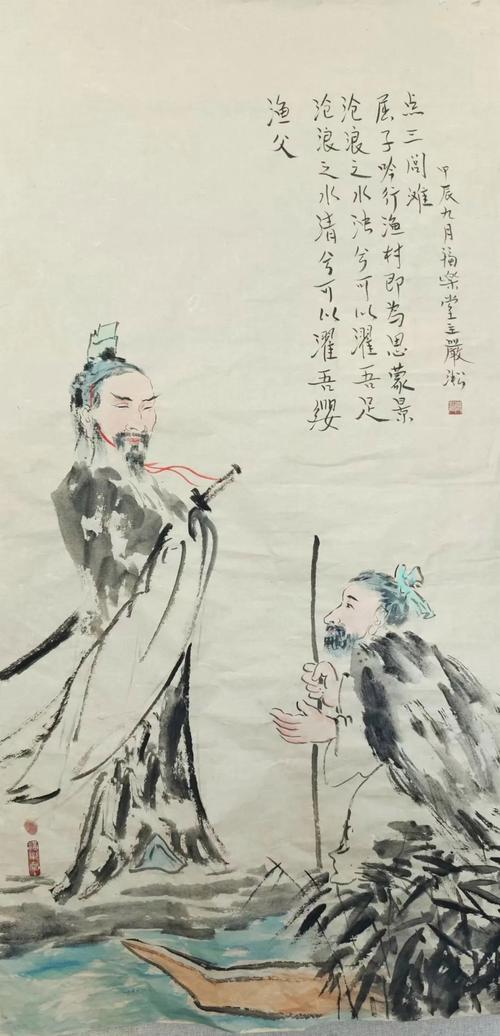 渔父
沧浪之水清兮可以濯吾缨
沧浪之水浊兮可以濯吾足
屈子吟行渔村即为思蒙景
点三闾滩
甲辰九月福荣堂主嚴淞